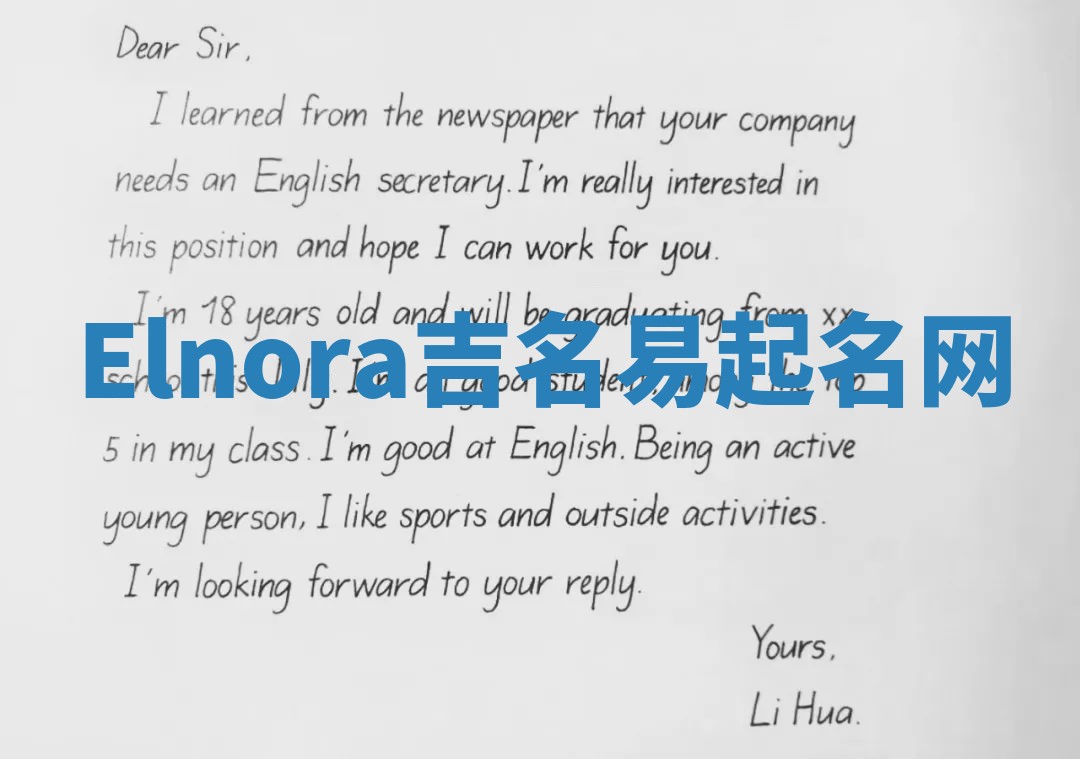 Dear Sir,
I learned from the newspaper that your company
needs an English secretary. I'm really interested in
this position and hope I can work for you.
I'm 18 years old and will be graduating from xx
Elnora吉名易起名网
school this July. I'm a good student, among the top
5 in my class. I'm good at English. Being an active
young person, I like sports and outside activities.
I'm looking forward to your reply.
Yours,
Li Hua.